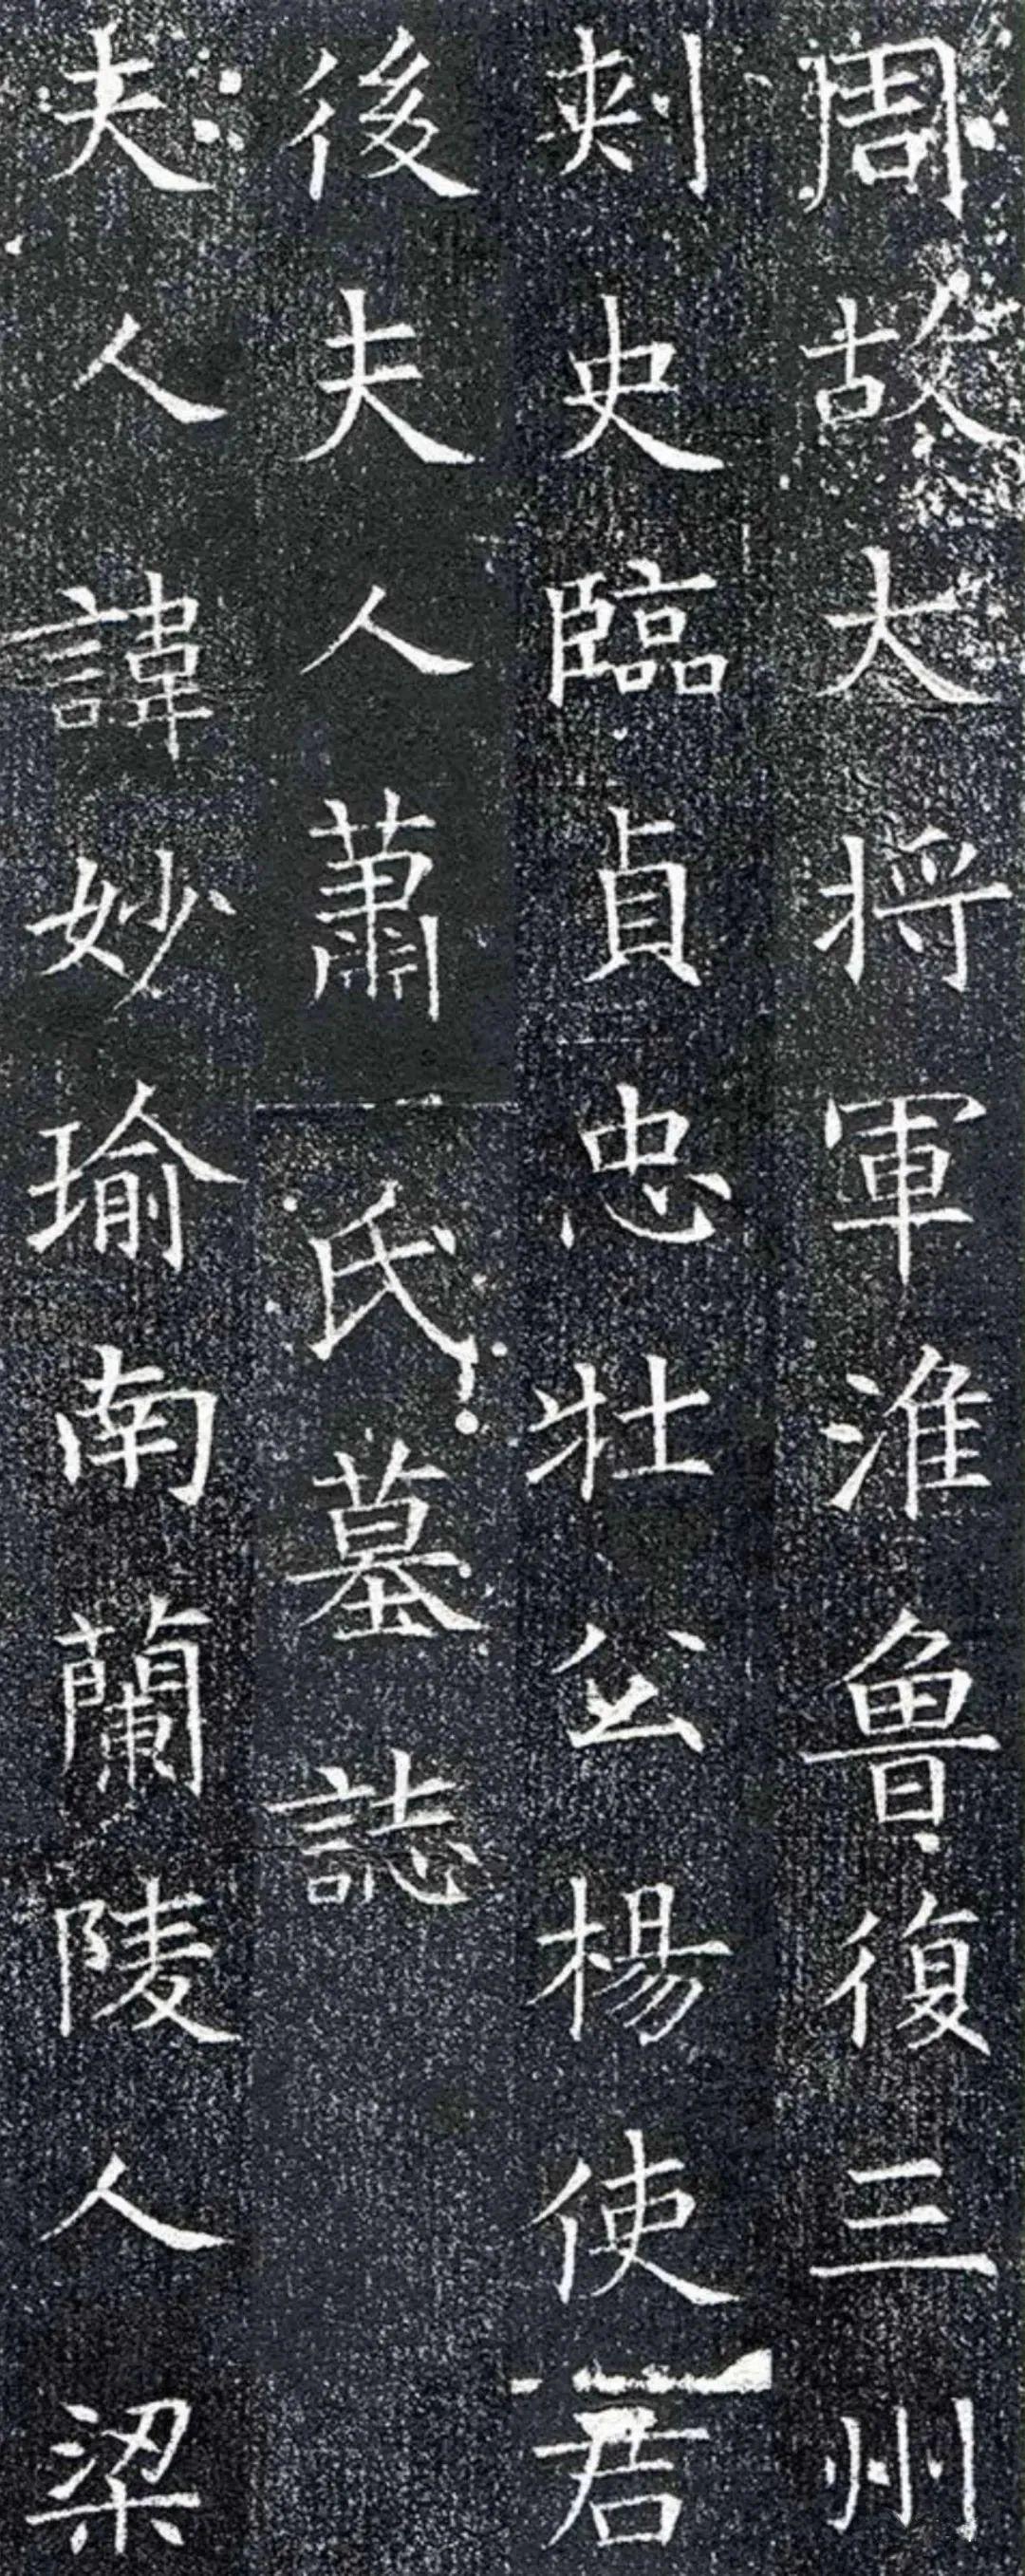 周故大将軍淮魯復三州
刾史臨貞忠壯公楊使君
後夫人蕭氏墓誌
夫人諱妙瑜南蘭陵人梁